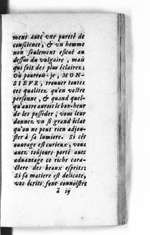 ment auec vne pureté de
conscience, & vn homme
non seulement esleué au
dessus du vulgaire, mais
qui soit des plus éclairez.
Où pourrois-je, MON-
SIEVR, trouuer toutes
ces qualitez qu'en vostre
personne, & quand quel-
qu'autre auroit le bon-heur
de les posseder, vous leur
donnez vn si grand éclat
qu'on ne peut rien adjou-
ster à sa lumiere. Si cét
ouurage est curieux, vous
auez tousiours porté auec
aduantage ce riche cara-
ctere des beaux esprits;
Si sa matiere est delicate,
vos écrits font connoistre